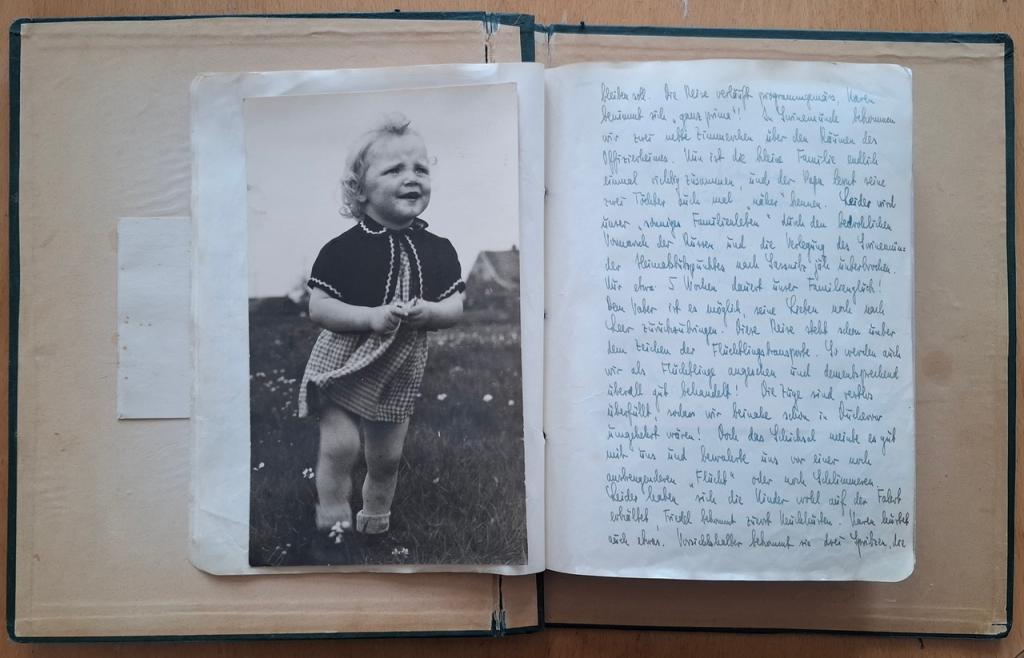 bleiben soll. Die Reise verläuft programmgemäss, Karen
benimmt sich „ganz prima"! In Swinemünde bekommen
wir zwei nette Zimmerchen über den Räumen des
Offiziersheimes. Nun ist die kleine Familie endlich
einmal richtig zusammen, und der Papa lernt seine
zwei Töchter auch mal „näher" kennen. Leider wird
unser „sonniges Familienleben" durch den bedrohlichen
Vormarsch der Russen und die Verlegung des Swinemün=
der Heimatstützpunktes nach Sassnitz jäh unterbrochen.
Nur etwa 5 Wochen dauert unser Familienglück!
Dem Vater ist es möglich, seine Lieben noch nach
Leer zurückzubringen. Diese Reise steht schon unter
dem Zeichen der Flüchtlingstransporte. So werden auch
wir als Flüchtlinge angesehen und dementsprechend
überall gut behandelt! Die Züge sind restlos
überfüllt, sodass wir beinahe schon in Pasewalk
umgekehrt wären! Doch das Schicksal meinte es gut
mit uns und bewahrte uns vor einer noch
anstrengenderen „Flucht" oder noch Schlimmerem.
Leider haben sich die Kinder wohl auf der Fahrt
erkältet. Friedel bekommt zuerst Keuchhusten. Karen hustet
auch etwas. Vorsichtshalber bekommt sie drei Spritzen, die